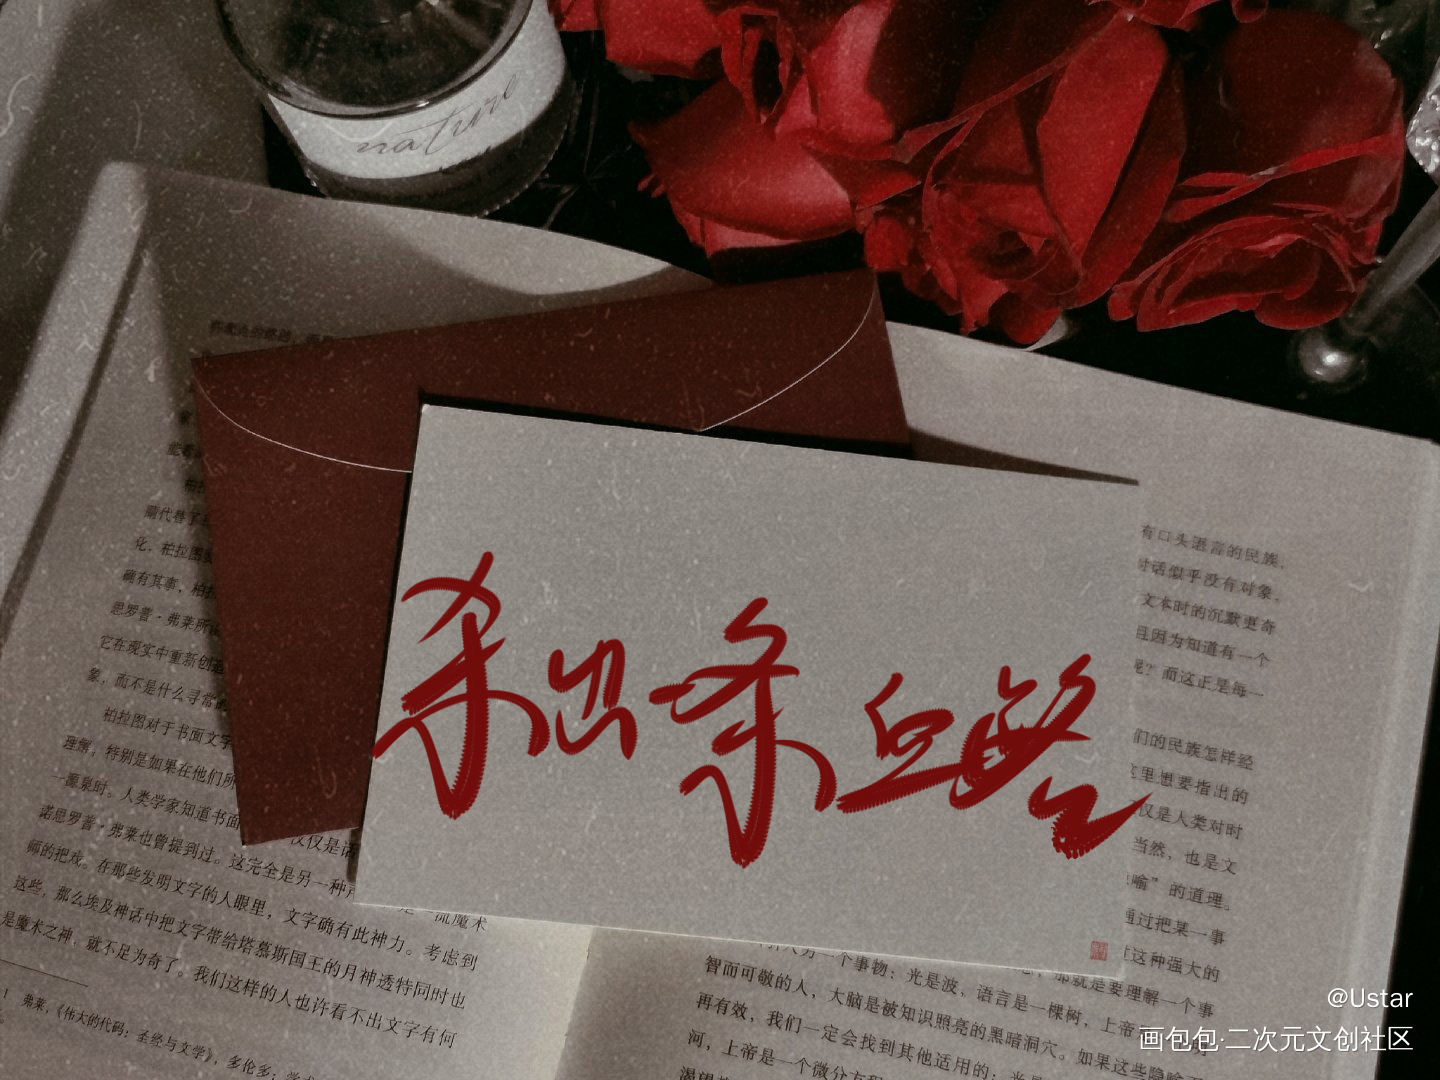 nature
杀出条血路
有口头语言的民族，
对话似乎没有对象，
文本时的沉默更奇
且因为知道有一个
呢？而这正是每一
们的民族怎样经
这里想要指出的
仅是人类对时
当然，也是文
喻”的道理。
通过把某一事
这种强大的
化，柏拉图
确有其事，柏拉
思罗普·弗莱所
它在现实中重新创造
象，而不是什么寻常的
柏拉图对于书面文字
理解。特别是如果在他们所
一源泉时。人类学家知道书面 仅仅是话
诺思罗普·弗莱也曾提到过。这完全是另一种
师的把戏。在那些发明文字的人眼里，文字确有此神力。考虑到
这些，那么埃及神话中把文字带给塔慕斯国王的月神透特同时也
是魔术之神，就不足为奇了。我们这样的人也许看不出文字有何
一流魔术
1 弗莱，《伟大的代码：圣经与文学》，多伦多：学术
另一个事物：光是波，语言是一棵树，上帝
那就是要理解一个事
智而可敬的人，大脑是被知识照亮的黑暗洞穴。如果这些隐喻不
再有效，我们一定会找到其他适用的：光是
河，上帝是一个微分方程
渴望
@Ustar
画包包·二次元文创社区